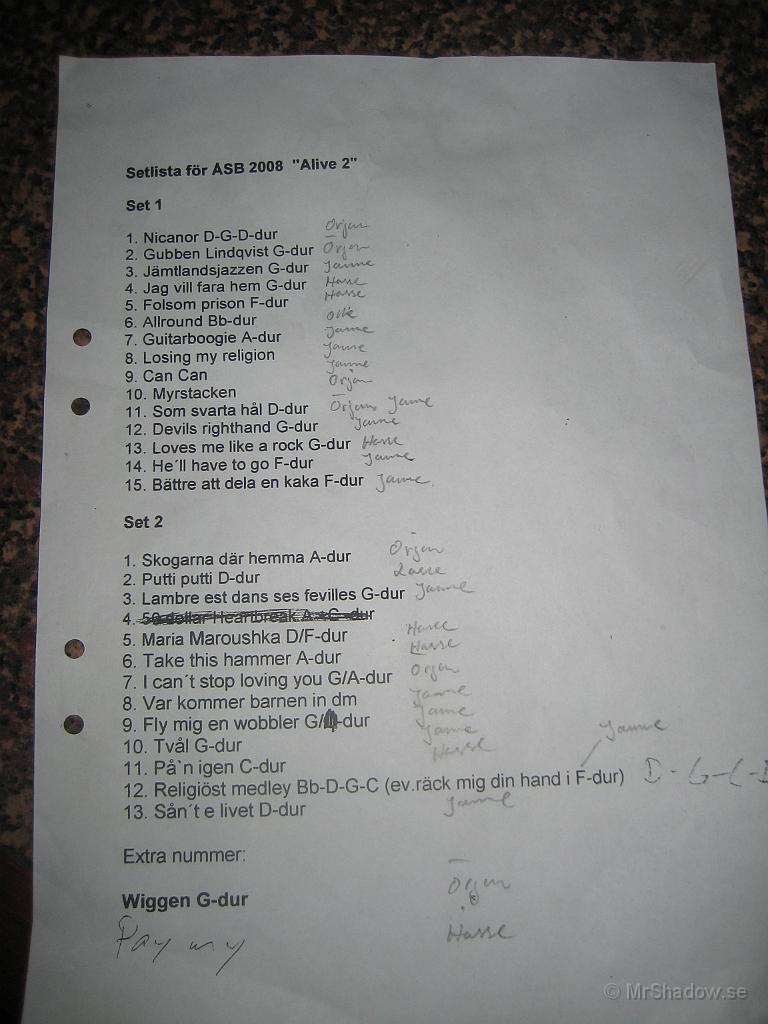 Setlista för ASB 2008 "Alive 2"
Set 1
1. Nicanor D-G-D-dur Örjan
2. Gubben Lindqvist G-dur Örjan
3. Jämtlandsjazzen G-dur Janne
4. Jag vill fara hem G-dur Hasse
5. Folsom prison F-dur Hasse
6. Allround Bb-dur Olle
7. Guitarboogie A-dur Janne
8. Losing my religion Janne
9. Can Can Janne
10. Myrstacken Örjan
11. Som svarta hål D-dur Örjan, Janne
12. Devils righthand G-dur Janne
13. Loves me like a rock G-dur Hasse
14. He´ll have to go F-dur Janne
15. Bättre att dela en kaka F-dur Janne
Set 2
1. Skogarna där hemma A-dur Örjan
2. Putti putti D-dur Lasse
3. Lambre est dans ses fevilles G-dur Janne
4. 50 dollar Heartbreak A-dur
5. Maria Maroushka D/F-dur Hasse
6. Take this hammer A-dur Hasse
7. I can´t stop loving you G/A-dur Örjan
8. Var kommer barnen in dm Janne
9. Fly mig en wobbler G/ -dur Janne
10. Tvål G-dur Janne
11. På`n igen C-dur Hasse
12. Religiöst medley Bb-D-G-C (ev.räck mig din hand i F-dur) Janne D-G-C-D
13. Sån´t e livet D-dur Janne
Extra nummer:
Wiggen G-dur Örjan
Pay my Hasse
© MrShadow.se